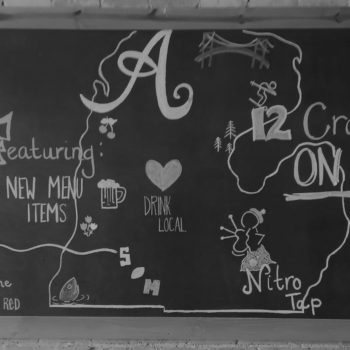 A
Featuring:
NEW MENU
ITEMS
DRINK
LOCAL
12 Cra
ON
SOM
Nitro
Tap
RED